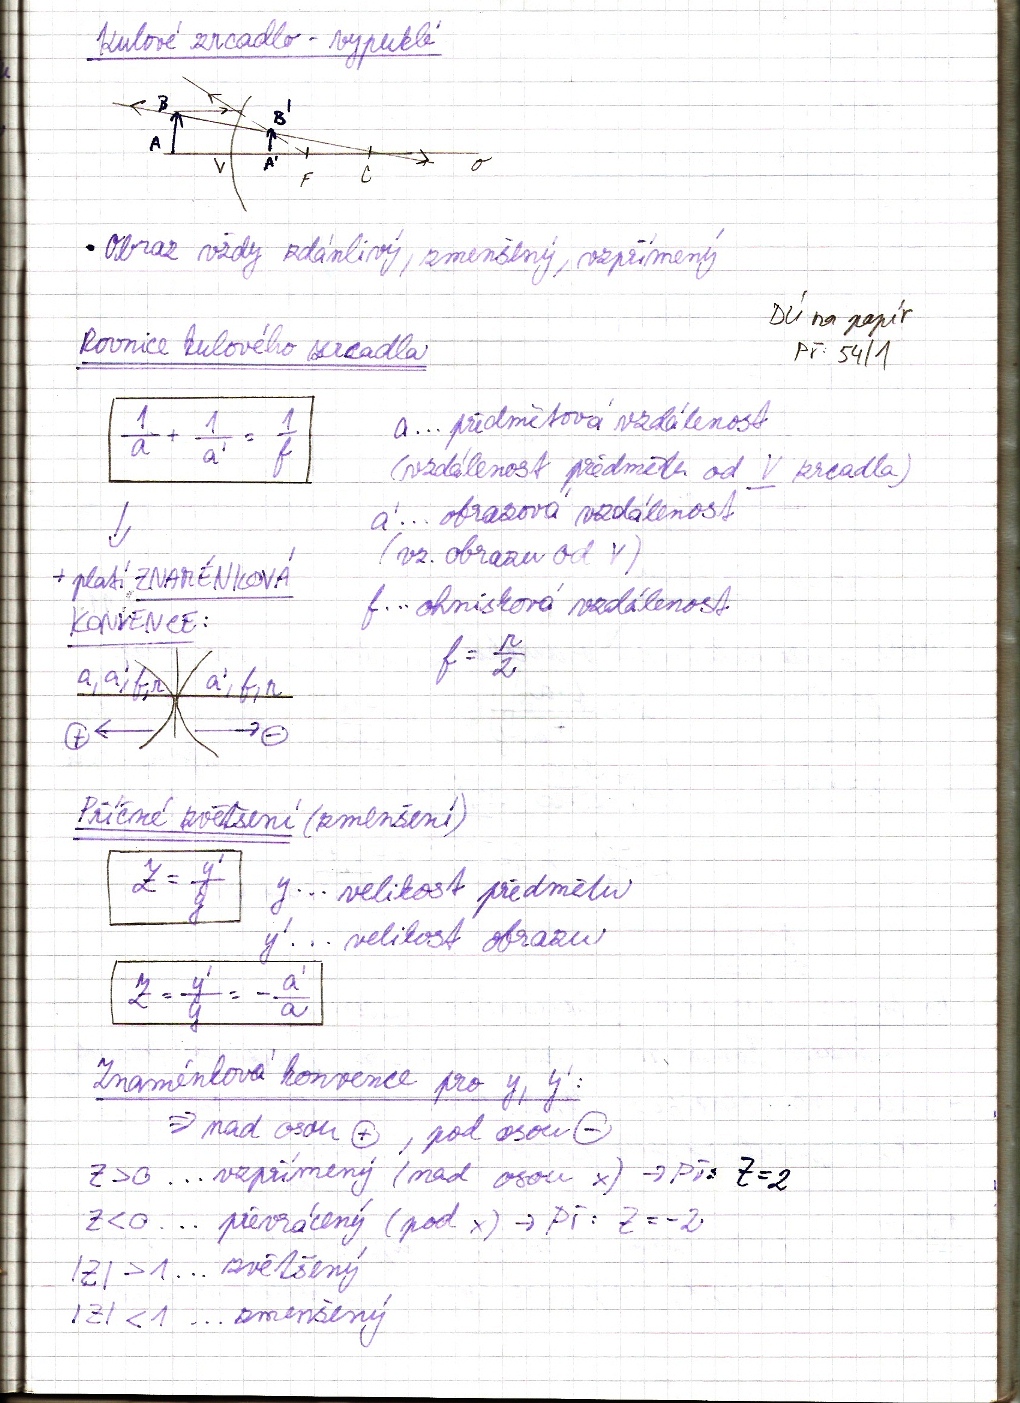 Kulové zrcadlo - vypuklé
B B'
A V A' F C o
• Obraz vždy zdánlivý, zmenšený, vzpřímený
DÚ na papír
Př: 54/1
Rovnice kulového zrcadla
1/a + 1/a' = 1/f
a... předmětová vzdálenost
(vzdálenost předmětu od V zrcadla)
a'... obrazová vzdálenost
(vz. obrazu od V)
f... ohnisková vzdálenost
f = r/2
↓
+ platí ZNAMÉNKOVÁ
KONVENCE:
a, a', f, r a', f, r
⊕ ← → ⊖
Příčné zvětšení (zmenšení)
Z = y'/y
y... velikost předmětu
y'... velikost obrazu
Z = y'/y = - a'/a
Znaménková konvence pro y, y':
⇒ nad osou ⊕, pod osou ⊖
Z>0 ... vzpřímený (nad osou x) → Př: Z=2
Z<0 ... převrácený (pod x) → Př: Z=-2
|Z| >1 ... zvětšený
|Z| <1 ... zmenšený